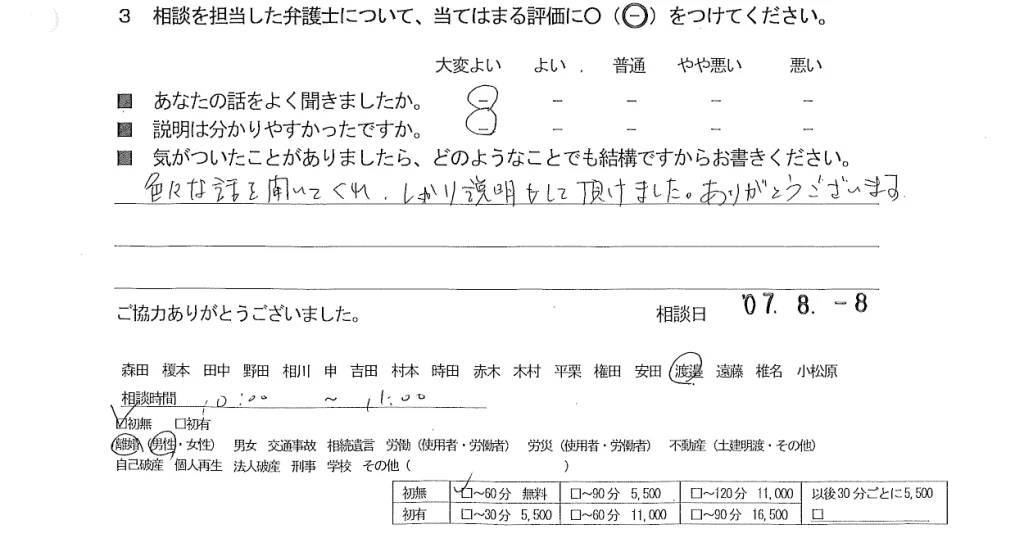 3 相談を担当した弁護士について、当てはまる評価に〇(㊀)をつけてください。
大変よい よい 普通 やや悪い 悪い
■ あなたの話をよく聞きましたか。 － － － － －
■ 説明は分かりやすかったですか。 － － － － －
■ 気がついたことがありましたら、どのようなことでも結構ですからお書きください。
色々な話を聞いてくれ、しかり説明もして頂けました。ありがとうございます
ご協力ありがとうございました。 相談日 '07. 8. -8
森田 榎本 田中 野田 相川 申 吉田 村本 時田 赤木 木村 平栗 権田 安田 渡邉 遠藤 椎名 小松原
相談時間 10:00 ~ 11:00
☑初無 □初有
離婚 (男性・女性) 男女 交通事故 相続遺言 労働(使用者・労働者) 労災(使用者・労働者) 不動産(土建明渡・その他)
自己破産 個人再生 法人破産 刑事 学校 その他( )
初無 ☑~60分 無料 □~90分 5,500 □~120分 11,000 以後30分ごとに5,500
初有 □~30分 5,500 □~60分 11,000 □~90分 16,500 □